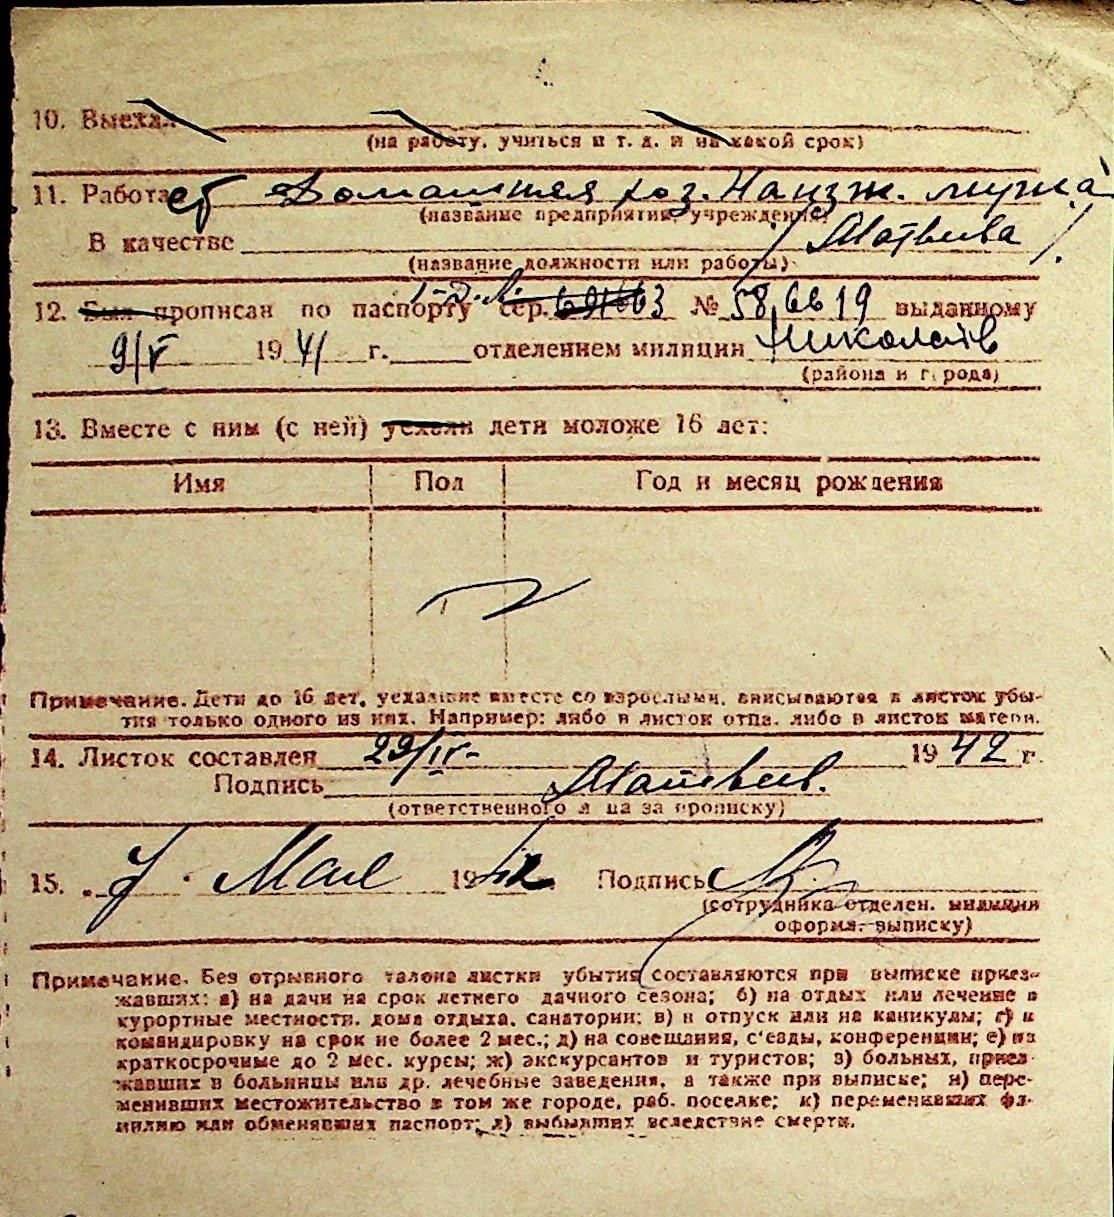 10. Выехал
(на работу, учиться и т. д. и на какой срок)
11. Работает Домашняя хоз. На изж. мужа
(название предприятия, учреждения)
В качестве / Матвеева /.
(название должности или работы)
12. Был прописан по паспорту сер. № 586619 выданному
9/V 1941 г. отделением милиции Николаев
(района и города)
13. Вместе с ним (с ней) уехали дети моложе 16 лет:
Имя Пол Год и месяц рождения
Примечание. Дети до 16 лет, уехавшие вместе со взрослыми, вписываются в листок убы-
тия только одного из них. Например: либо в листок отца, либо в листок матери.
14. Листок составлен 29/IV- 1942 г.
Подпись Матвеев.
(ответственного лица за прописку)
15. 7. Мая 1942 Подпись
(сотрудника отделен. милиции
оформ. выписку)
Примечание. Без отрывного талона листки убытия составляются при выписке приез-
жавших: а) на дачи на срок летнего дачного сезона; б) на отдых или лечение в
курортные местности, дома отдыха, санатории; в) в отпуск или на каникулы; г) в
командировку на срок не более 2 мес.; д) на совещания, с'езды, конференции; е) на
краткосрочные до 2 мес. курсы; ж) экскурсантов и туристов; з) больных, приез-
жавших в больницы или др. лечебные заведения, а также при выписке; и) пере-
менивших местожительство в том же городе, раб. поселке; к) переменивших фа-
милию или обменявших паспорт; л) выбывших вследствие смерти.